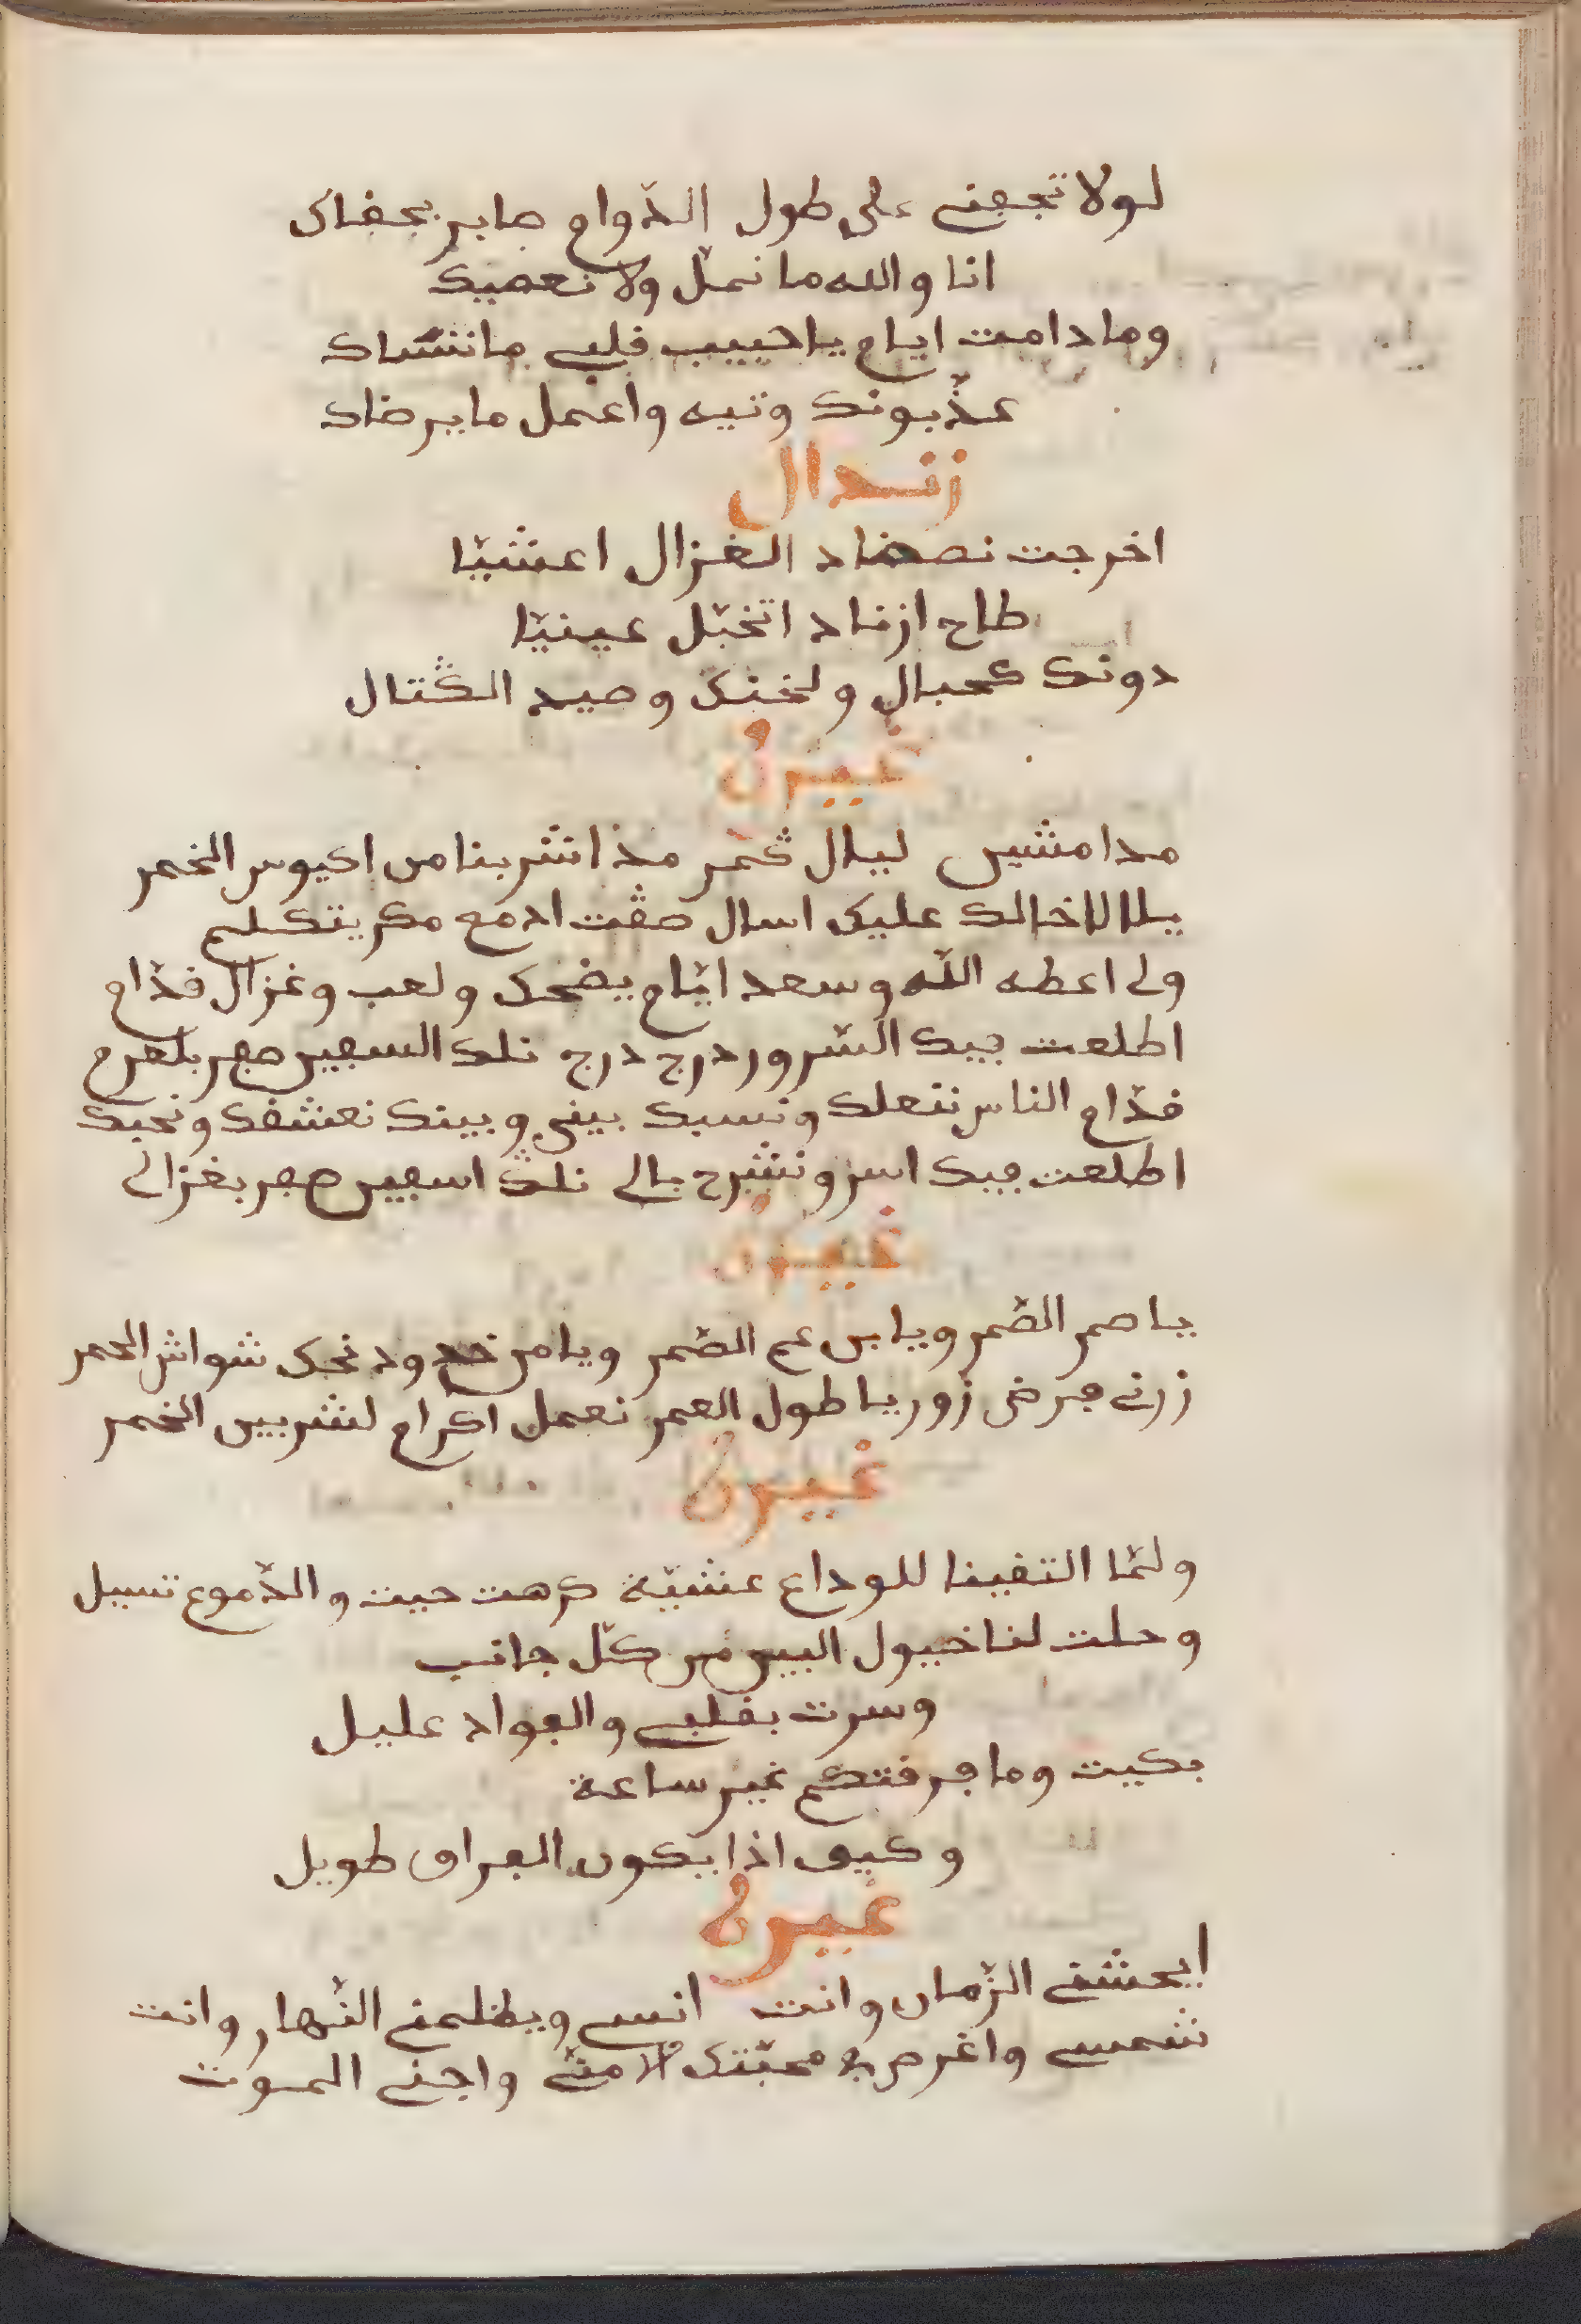 لولا تجفني على طول الدّوام صابر بجفاك
انا والله ما نملّ ولا نعصيك
وما دامت ايام يا حبيب قلبي ما ننساك
عذّبونك وتيه واعمل ما يرضاك
زنـدال
اخرجت نصطاد الغزال اعشيّا
طاح ازناد اتخبّل عينيّا
دونك كحبال ولخنك وصيد الڭتال
غيرة
مدامشين ليال ڭمر مذا اشربنا من اكيوس الخمر
يلا لاخالك عليك اسال صڨت ادمع مكر يتكلم
ولى اعطه اللّه وسعد ايّام يضحك ولعب وغزال قدّام
اطلعت بيك السّرور درج درج نلك السبعين صهر بلعرم
قدّام الناس ننعلك ونسبك بيني وبينك نعشقك ونحبك
اطلعت بيك اسر ونشرح بالى نلڭ اسبعين صهر بغزالى
غيرة
يا صمر الصّمر ويا بن عم الصّمر ويا من خدود نحك شواش الحمر
زرني مرض زور يا طول العمر نعمل اكرام لشربين الخمر
غيرة
ولمّا التقينا للوداع عشيّة كرهت حيت والدّموع تسيل
وحلت لنا خيول البين من كلّ جانب
وسرت بقلبي والفواد عليل
بكيت وما فرقتكم غير ساعة
وكيف اذا يكون الفراق طويل
غيرة
ايحشني الزّمان وانت انسي ويظلمني النّهار وانت
شمسي واغرص في محبّتك لامنّي واجني المـوت